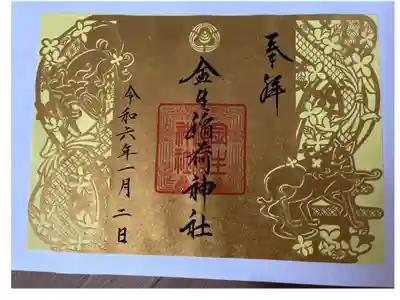 奉拝
金生稲荷神社
令和六年一月二日